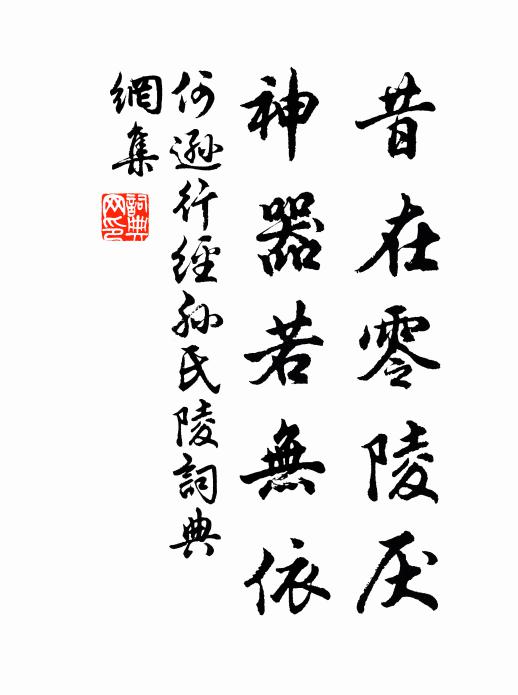 昔在零陵厌
神器若無依
何遜行經孙氏陵詞典
網集
詞典
网印